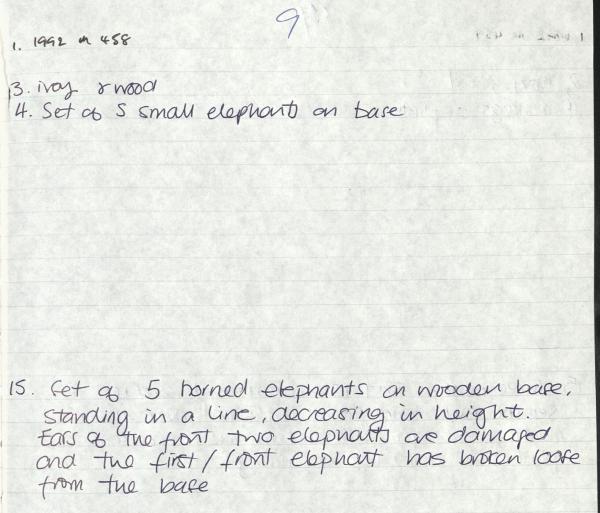 9
1. 1992 m 458
3. ivory & wood
4. Set of 5 small elephants on base
15. Set of 5 horned elephants on wooden base,
standing in a line, decreasing in height.
Ears of the front two elephants are damaged
and the first/front elephant has broken loose
from the base